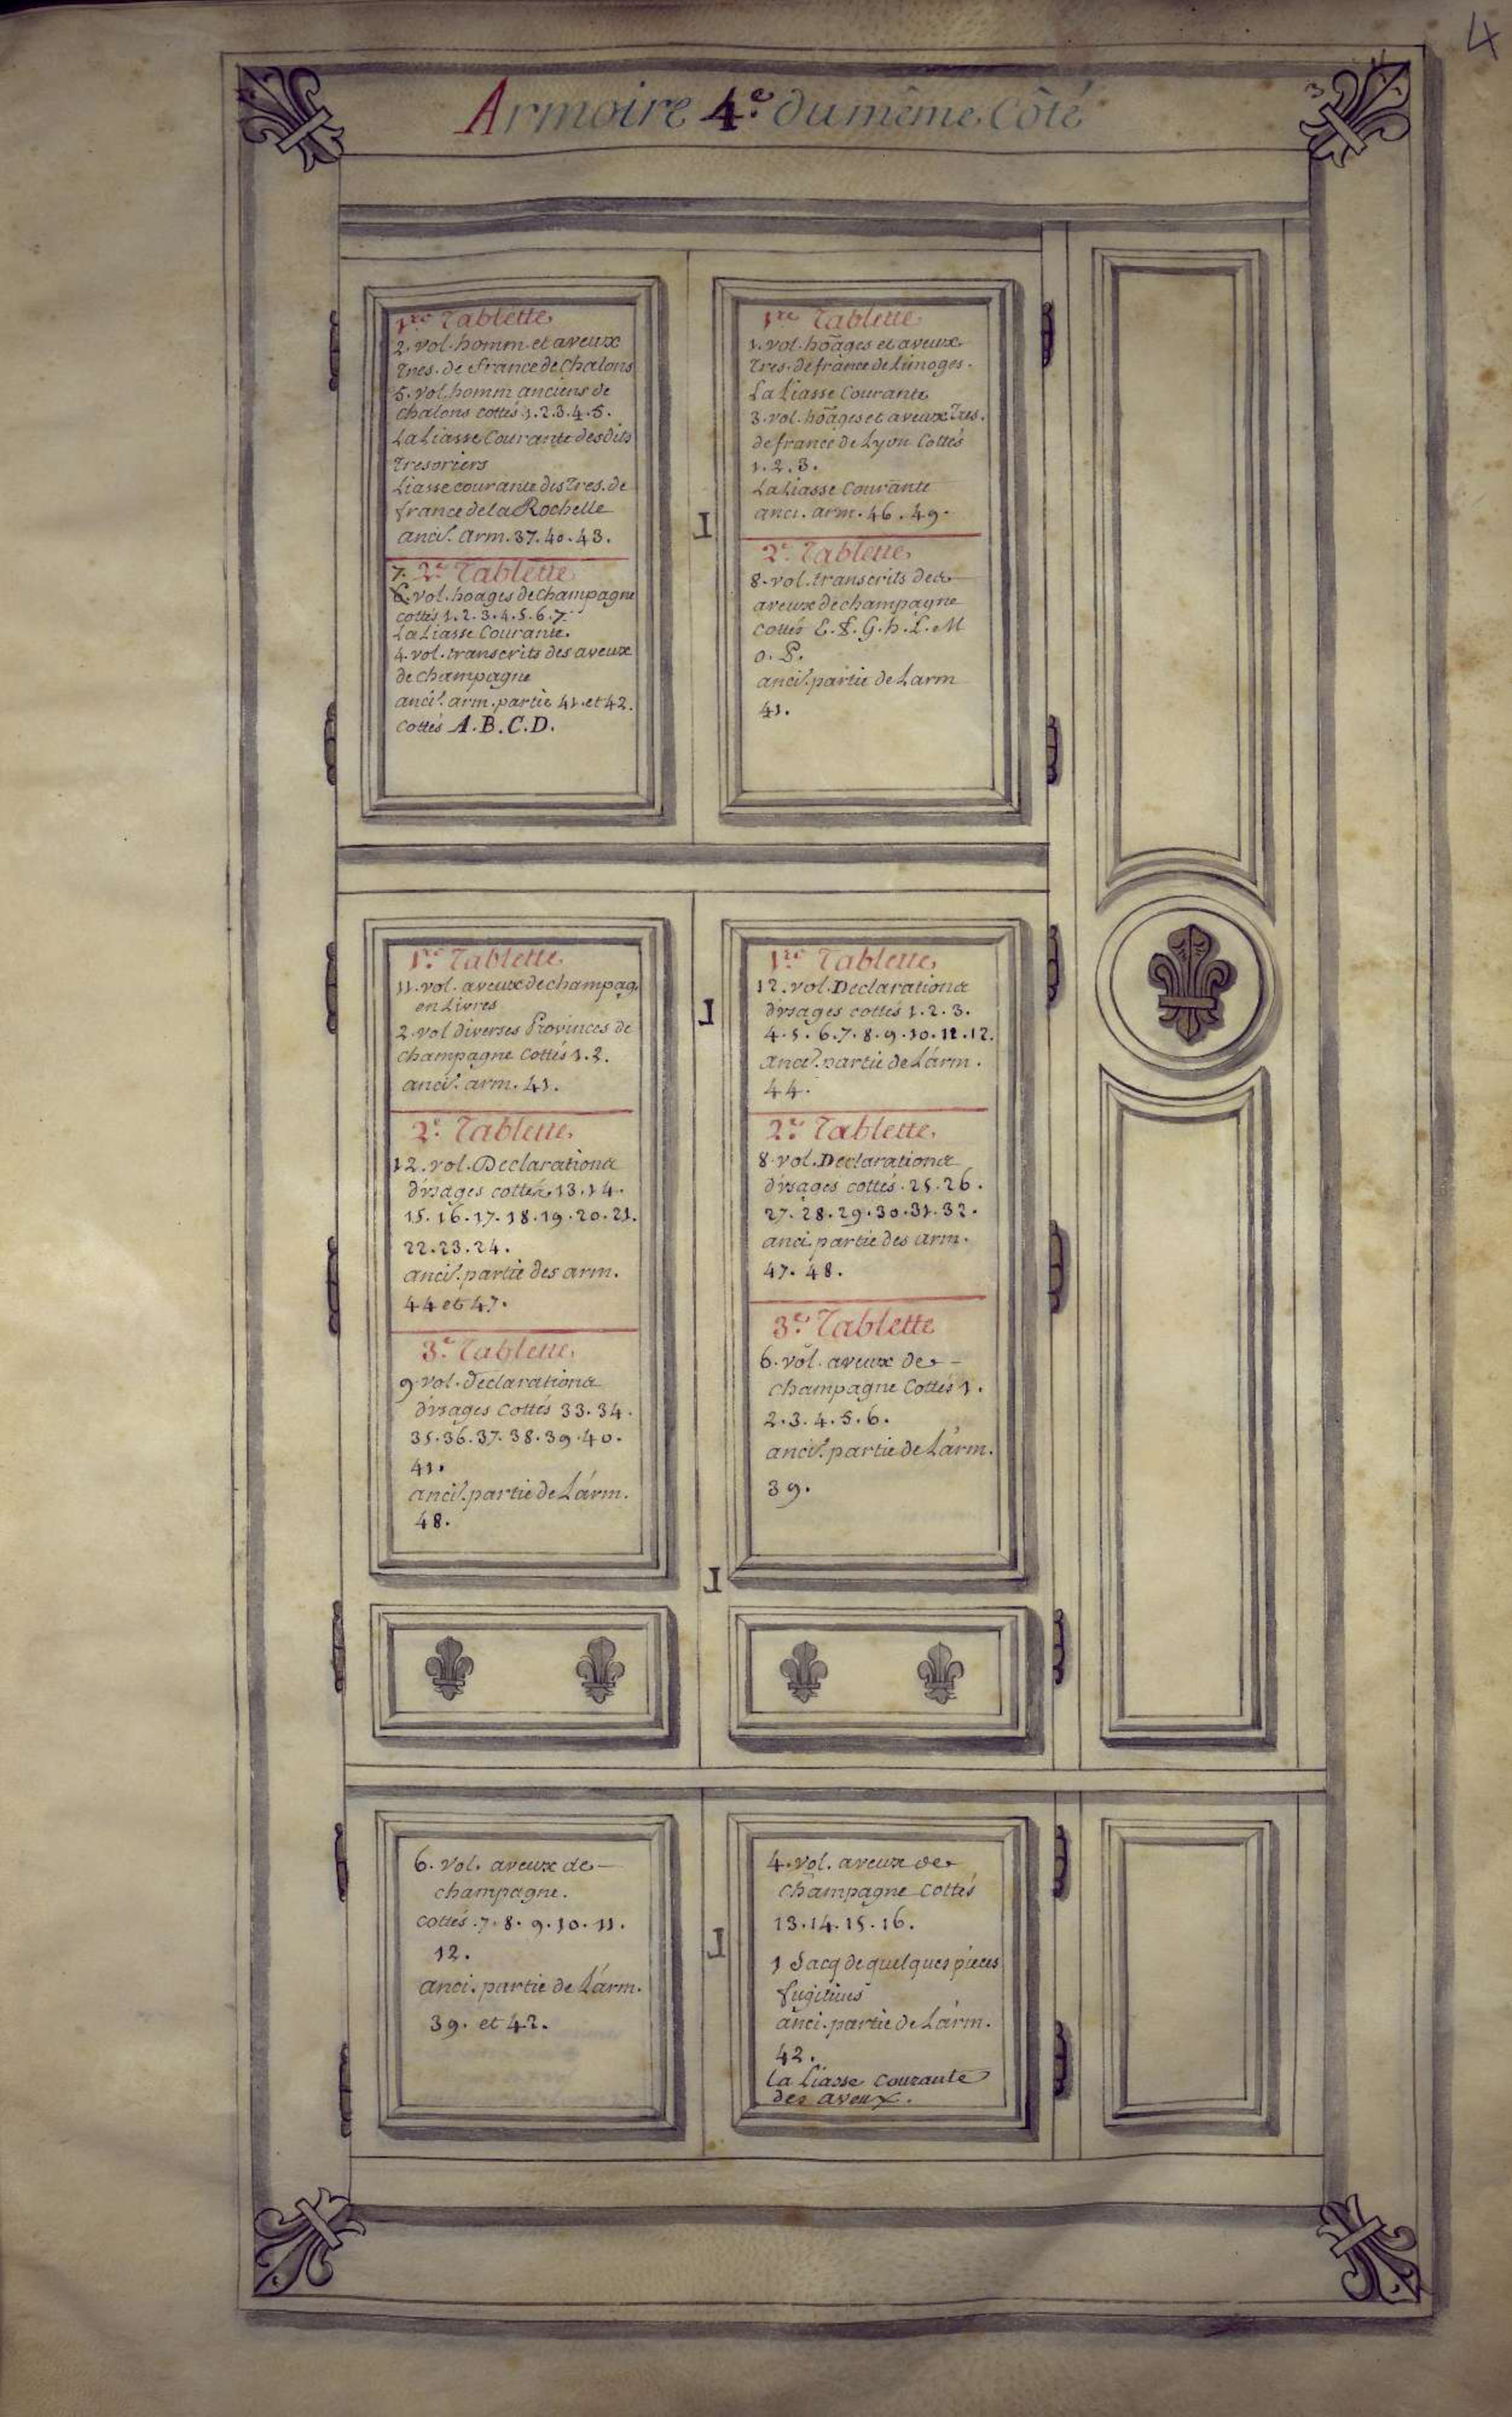 4
Armoire 4.e du même Côté
1.re Tablette
2. vol. homm. et aveux
Tres. de france de Chalons
5. vol. homm. anciens de
chalons cottés 1. 2. 3. 4. 5.
La Liasse Courante desdits
Tresoriers
Liasse courante des Tres. de
france de la Rochelle
anci.t arm. 37. 40. 43.
7. 2.e Tablette
6. vol. hoages de champagne
cottés 1. 2. 3. 4. 5. 6. 7.
La Liasse Courante.
4. vol. transcrits des aveux
de champagne
anci.t arm. partie 41. et 42.
Cottés A. B. C. D.
1.re Tablette
1. vol. hoages et aveux
Tres. de france de Limoges.
La Liasse Courante
3. vol. hoages et aveux Tres.
de france de Lyon Cottés
1. 2. 3.
La Liasse Courante
anci. arm. 46. 49.
2.e Tablette
8. vol. transcrits des
aveux de champagne
cottés E. F. G. h. L. M
O. P.
anci.t partie de Larm
41.
1.re Tablette
11. vol. aveux de champag.
en Livres
2. vol diverses Provinces de
champagne Cottés 1. 2.
anci.t arm. 41.
2.e Tablette
12. vol. Declarations
d'usages cottés 13. 14.
15. 16. 17. 18. 19. 20. 21.
22. 23. 24.
anci.t partie des arm.
44 et 47.
3.e Tablette
9. vol. declarations
d'usages Cottés 33. 34.
35. 36. 37. 38. 39. 40.
41.
anci.t partie de L'arm.
48.
1.re Tablette
12. vol. Declarations
d'usages cottés 1. 2. 3.
4. 5. 6. 7. 8. 9. 10. 11. 12.
anci.t partie de L'arm.
44.
2.e Tablette
8. vol. Declarations
d'usages cottés. 25. 26.
27. 28. 29. 30. 31. 32.
anci. partie des arm.
47. 48.
3.e Tablette
6. vol. aveux de
champagne Cottés 1.
2. 3. 4. 5. 6.
anci.t partie de L'arm.
39.
6. vol. aveux de
champagne.
cottés. 7. 8. 9. 10. 11.
12.
anci. partie de L'arm.
39. et 42.
4. vol. aveux de
champagne Cottés
13. 14. 15. 16.
1 Sacq de quelques pieces
fugitives
anci. partie de L'arm.
42.
La Liasse Courante
des aveux.